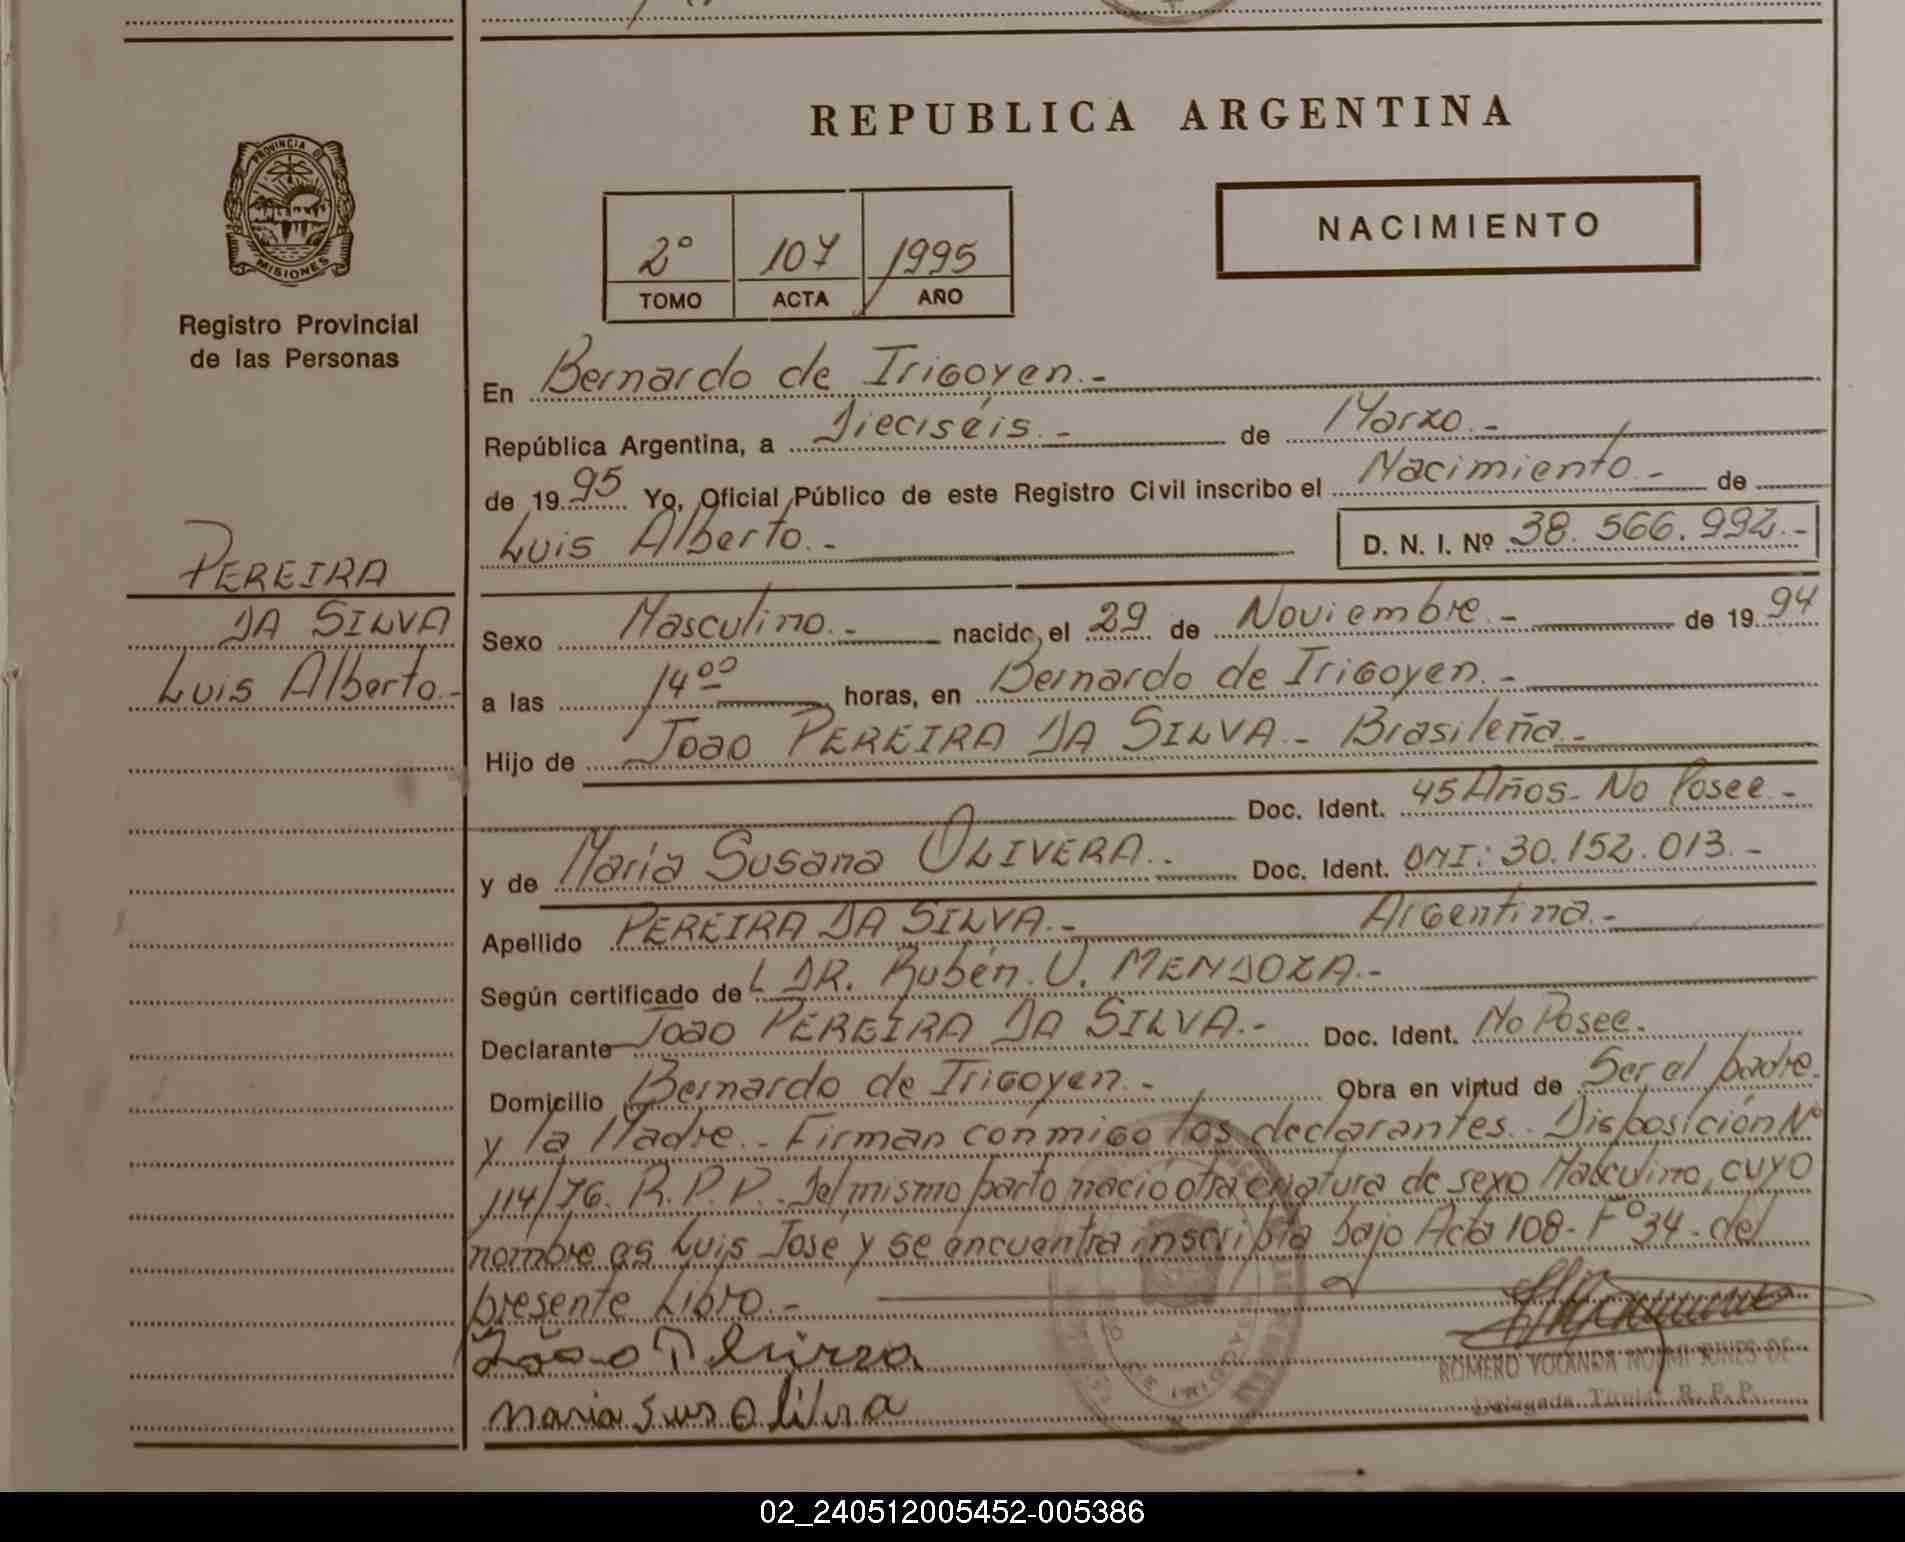 REPUBLICA ARGENTINA
PROVINCIA DE
MISIONES
Registro Provincial
de las Personas
2° 107 1995
TOMO ACTA AÑO
NACIMIENTO
En Bernardo de Irigoyen.-
República Argentina, a Dieciséis.- de Marzo.-
de 1995 Yo, Oficial Público de este Registro Civil inscribo el Nacimiento.- de
Luis Alberto.- D. N. I. Nº 38.566.992.-
PEREIRA
DA SILVA
Luis Alberto.-
Sexo Masculino.- nacido el 29 de Noviembre.- de 1994
a las 14 00 horas, en Bernardo de Irigoyen.-
Hijo de Joao PEREIRA DA SILVA.- Brasileña.-
Doc. Ident. 45 Años.- No Posee.-
y de María Susana OLIVERA.- Doc. Ident. DNI: 30.152.013.-
Apellido PEREIRA DA SILVA.- Argentina.-
Según certificado de L DR. Rubén. U. MENDOZA.-
Declarante Joao PEREIRA DA SILVA.- Doc. Ident. No Posee.
Domicilio Bernardo de Irigoyen.- Obra en virtud de Ser el padre.
y la Madre.- Firman conmigo los declarantes.- Disposición Nº
114/76. R.P.P.- Del mismo parto nació otra criatura de sexo Masculino, cuyo
nombre es Luis José y se encuentra inscripta bajo Acta 108- Fº 34- del
presente Libro.-
ROMERO YOLANDA NOEMI DE
Delegada Titular R.P.P.
02_240512005452-005386